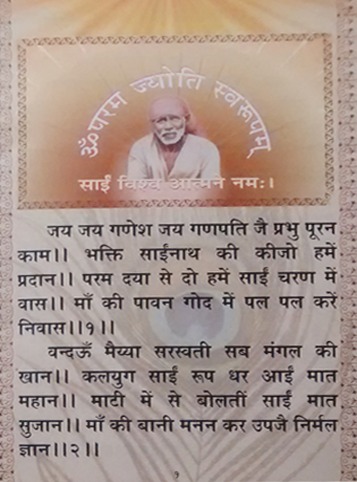 ॐ परम ज्योति स्वरूपम्
साईं विश्व आत्मने नमः।
जय जय गणेश जय गणपति जै प्रभु पूरन
काम।। भक्ति साईंनाथ की कीजो हमें
प्रदान।। परम दया से दो हमें साईं चरण में
वास।। माँ की पावन गोद में पल पल करें
निवास।।१।।
वन्दऊँ मैय्या सरस्वती सब मंगल की
खान।। कलयुग साईं रूप धर आईं मात
महान।। माटी में से बोलतीं साईं मात
सुजान।। माँ की बानी मनन कर उपजै निर्मल
ज्ञान।।२।।
१